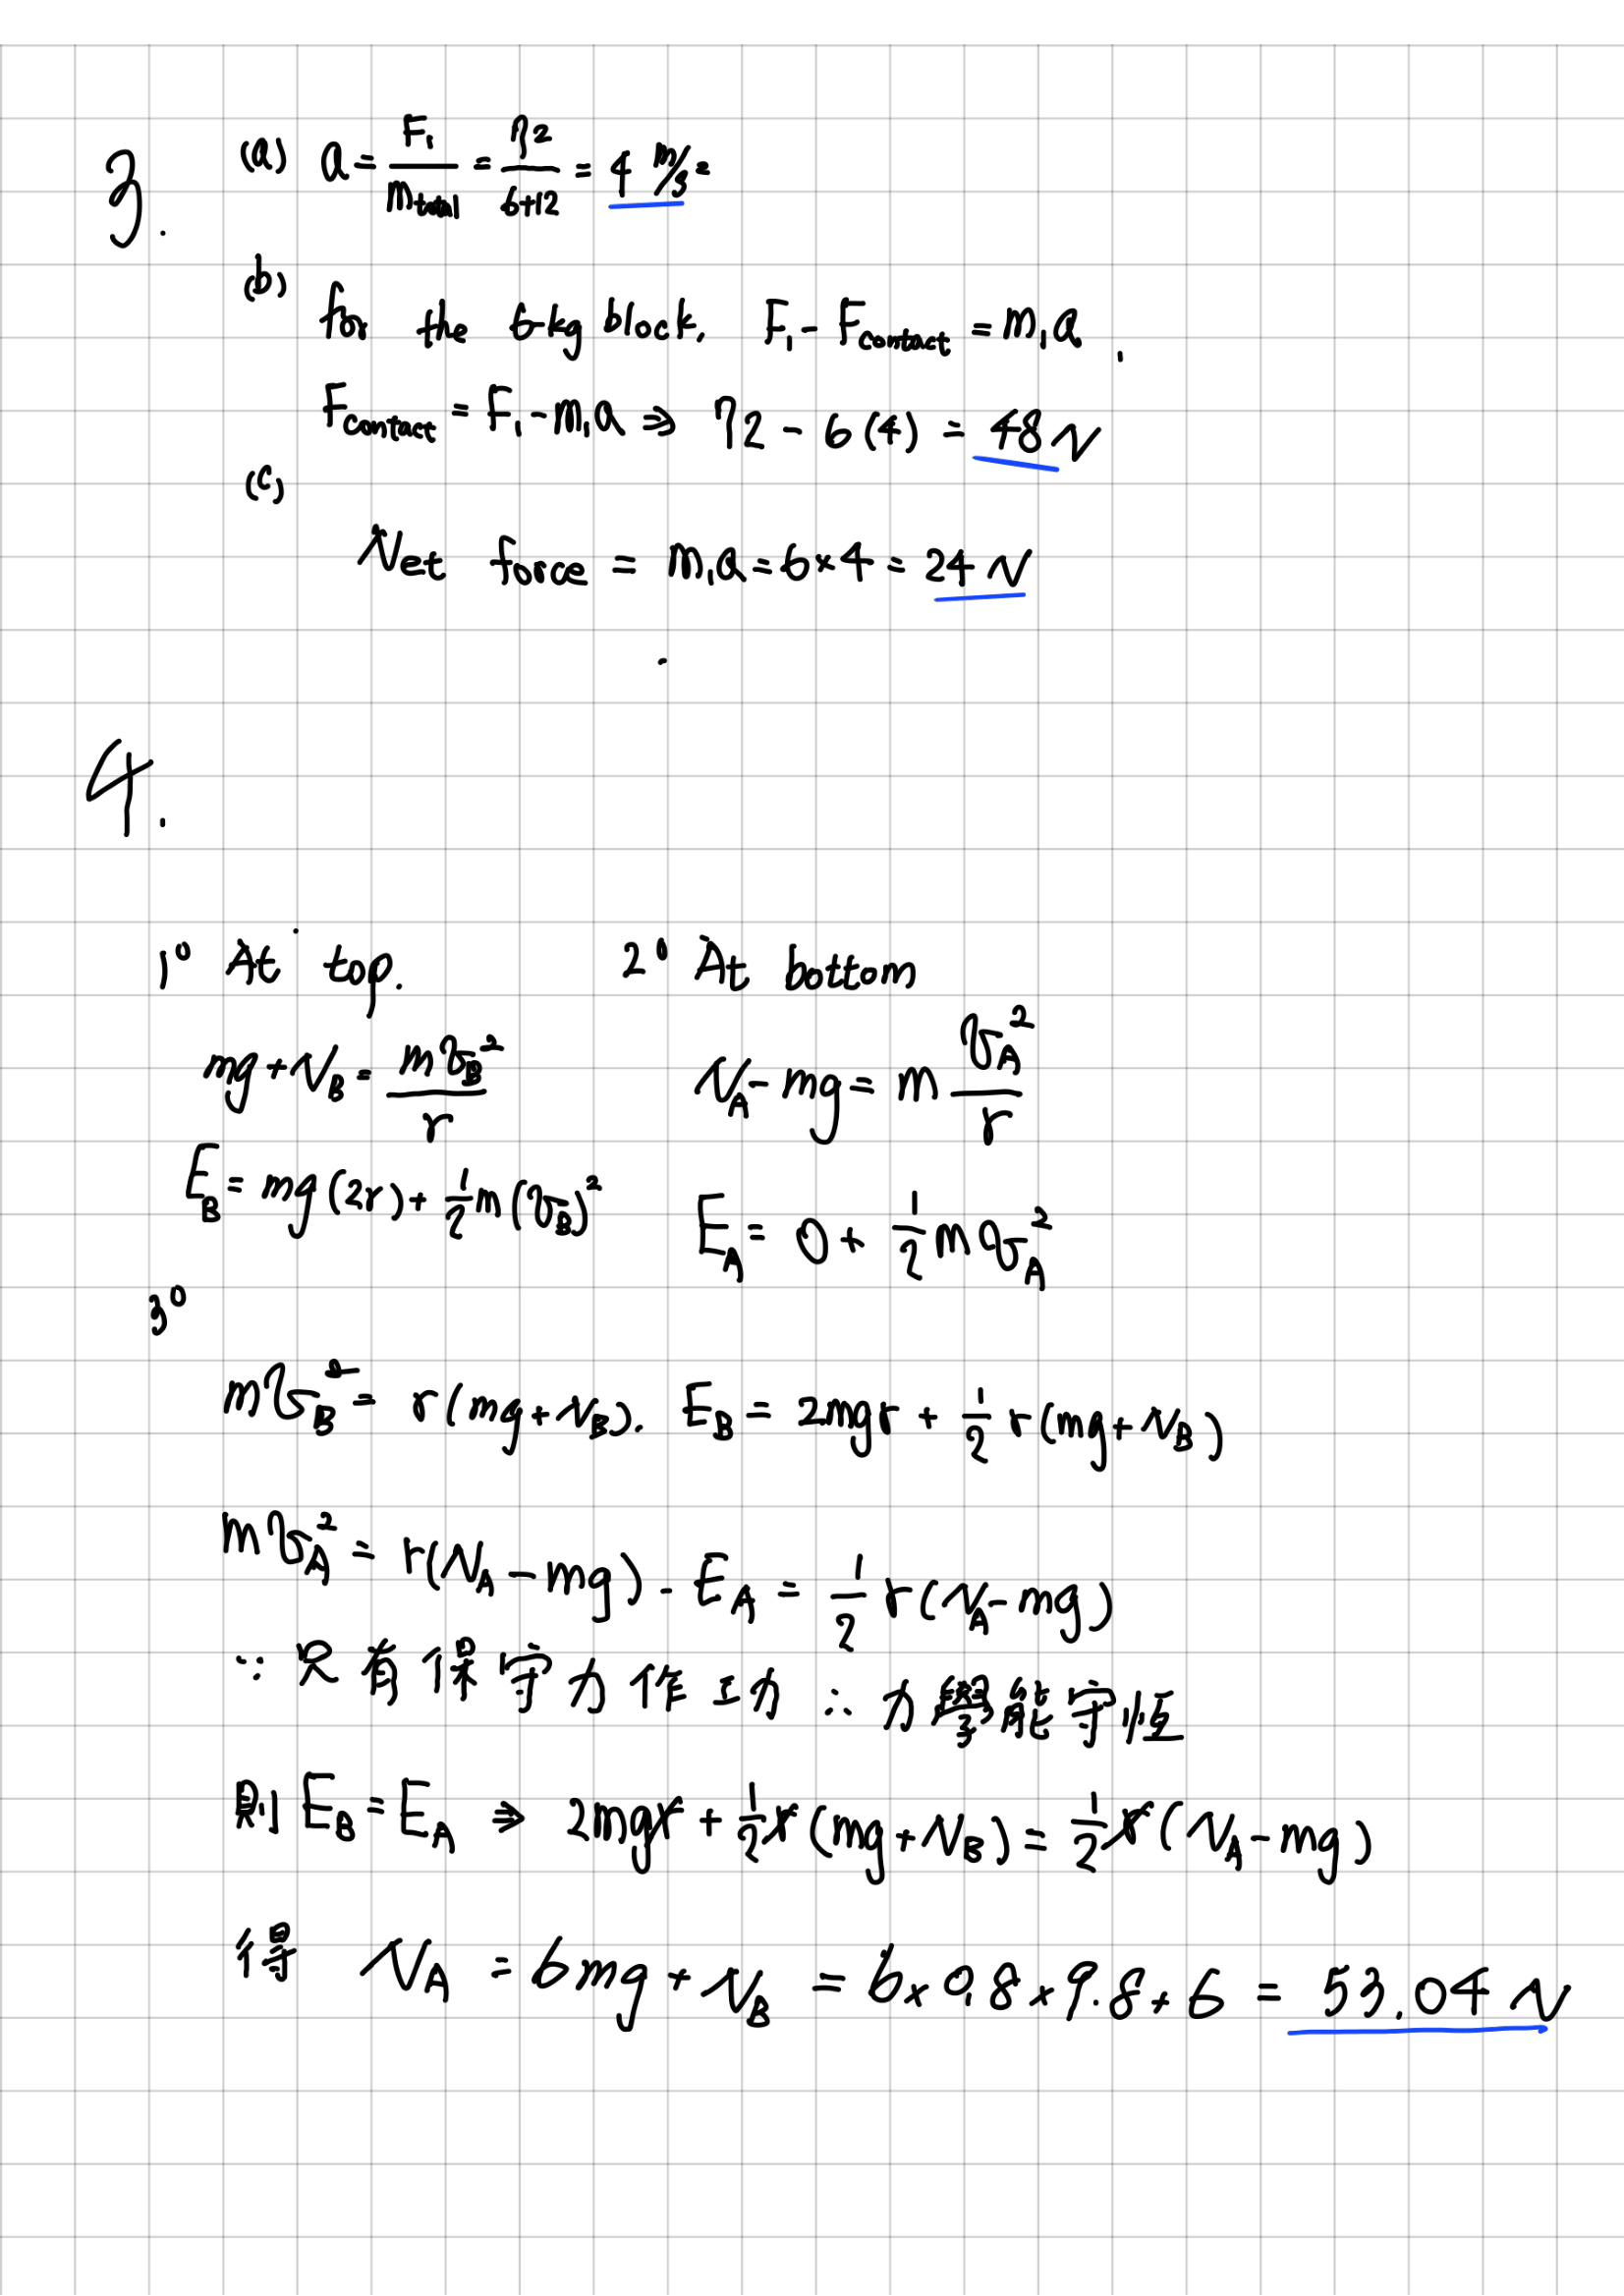 3.
(a) a = F₁/m_total = 72/(6+12) = 4 m/s²
(b)
for the 6-kg block. F₁ - F_contact = m₁a.
F_contact = F₁ - m₁a ⇒ 72 - 6(4) = 48 N
(c)
Net force = m₁a = 6×4 = 24 N
4.
1° At top.
mg + N_B = mv_B²/r
E_B = mg(2r) + 1/2 m(v_B)²
2° At bottom
N_A - mg = m v_A²/r
E_A = 0 + 1/2 m v_A²
3°
mv_B² = r(mg + N_B). E_B = 2mgr + 1/2 r(mg + N_B)
mv_A² = r(N_A - mg). E_A = 1/2 r(N_A - mg)
∵ 只有保守力作功 ∴ 力學能守恆
則 E_B = E_A ⇒ 2mgr + 1/2 r(mg + N_B) = 1/2 r(N_A - mg)
得 N_A = 6mg + N_B = 6×0.8×9.8+6 = 53.04 N